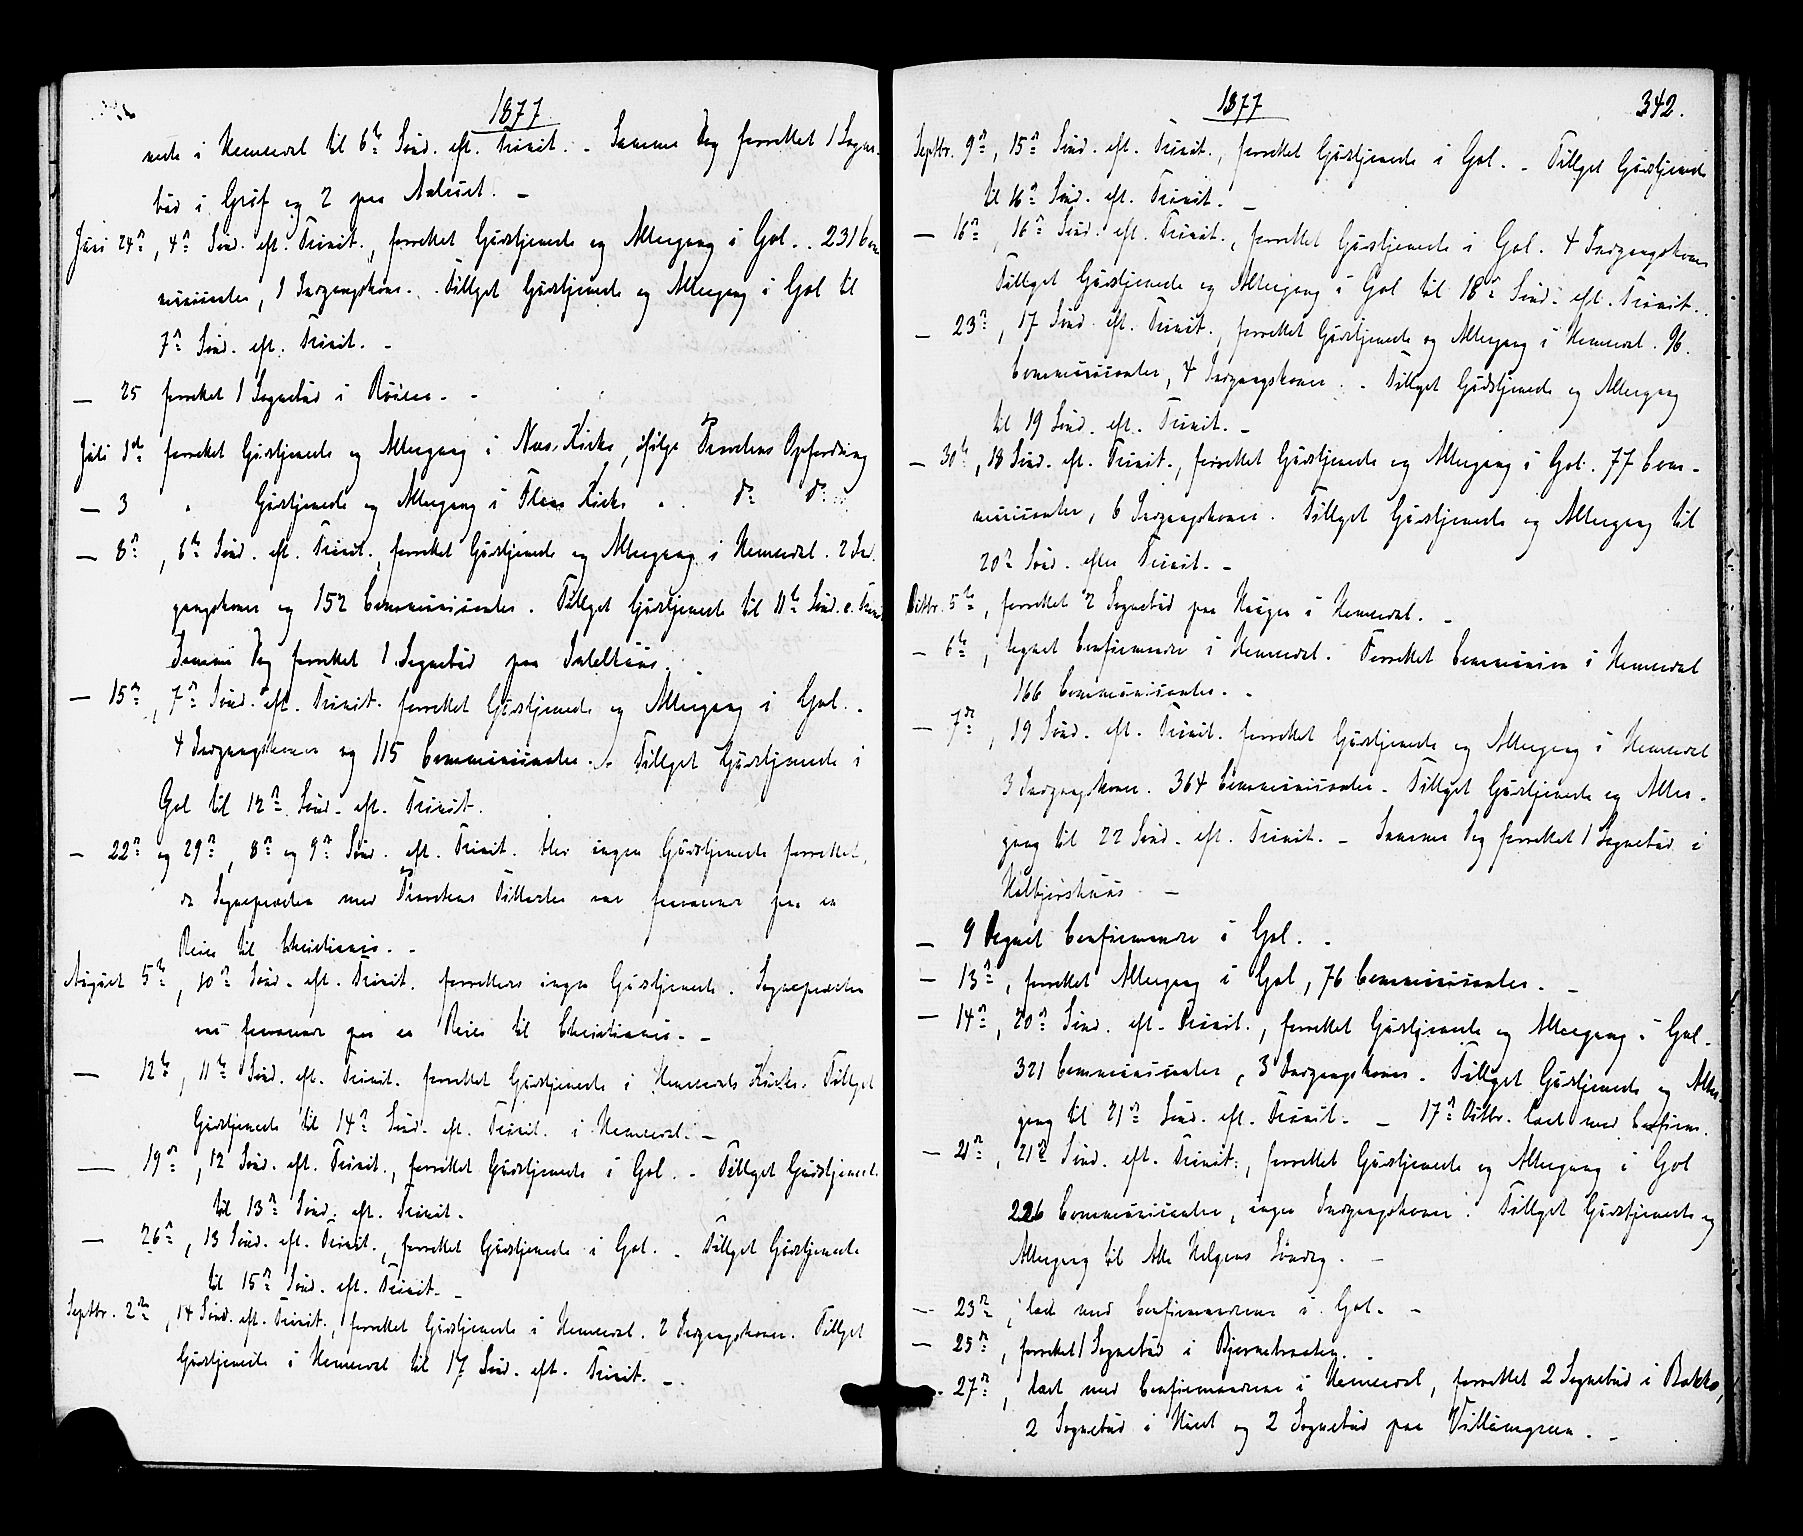 1877.
neste i Hemsedal til 6te Sønd. eft. Trinit. - Samme Dag forrettet 1 Sogne-
bud i Grøf og 2 paa
Juni 24de, 4de Sønd. eft. Trinit., forrettet Gudstjeneste og Altergang i Gol. . 231 Com
municanter, 1 Indgangskone. . Tillyst Gudstjeneste og Altergang i Gol til
7de Sønd. eft. Trinit. -
— 25 forrettet 1 Sognebud i -
Juli 1ste forrettet Gudstjeneste og Altergang i Næs Kirke, ifølge Provstens Opfordring
— 3 " Gudstjeneste og Altergang i Flaa Kirke " do do
— 8de, 6te Sønd. eft. Trinit., forrettet Gudstjeneste og Altergang i Hemsedal. 2 Ind
gangskoner og 152 Communicanter. Tillyst Gudstjeneste til 11te Sønd. e. Trinit
Samme Dag forrettet 1 Sognebud paa
— 15de, 7de Sønd. eft. Trinit. forrettet Gudstjeneste og Altergang i Gol. .
4 Indgangskoner og 115 Communicanter. . Tillyst Gudstjeneste i
Gol til 12te Sønd. eft. Trinit.
— 22de og 29de, 8de og 9de Sønd. eft. Trinit. blev ingen Gudstjeneste forrettet,
da Sognepresten med Provstens Tilladelse var fraværende paa en
Reise til Christiania. -
August 5te, 10de Sønd. eft. Trinit. forrettedes ingen Gudstjeneste. Sognepresten
var fraværende paa en Reise til Christiania. -
— 12te, 11te Sønd. eft. Trinit. forrettet Gudstjeneste i Hemsedals Kirke. Tillyst
Gudstjeneste til 14de Sønd. eft. Trinit. i Hemsedal. -
— 19de, 12 Sønd. eft. Trinit., forrettet Gudstjeneste i Gol. - Tillyst Gudstjeneste
til 13de Sønd. eft. Trinit.
— 26de, 13 Sønd. eft. Trinit., forrettet Gudstjeneste i Gol. - Tillyst Gudstjeneste
til 15de Sønd. eft. Trinit. -
Septbr. 2den, 14 Sønd. eft. Trinit., forrettet Gudstjeneste i Hemsedal. 2 Indgangskoner. Tillyst
Gudstjeneste i Hemsedal til 17 Sønd. eft. Trinit. -
1877
342.
Septbr. 9de, 15de Sønd. eft. Trinit., forrettet Gudstjeneste i Gol. - Tillyst Gudstjeneste
til 16de Sønd. eft. Trinit. -
— 16de, 16de Sønd. eft. Trinit., forrettet Gudstjeneste i Gol. 4 Indgangskoner
Tillyst Gudstjeneste og Altergang i Gol til 18de Sønd. eft. Trinit. .
— 23de, 17 Sønd. eft. Trinit., forrettet Gudstjeneste og Altergang i Hemsedal. 96.
Communicanter, 4 Indgangskoner. - Tillyst Gudstjeneste og Altergang
til 19 Sønd. eft. Trinit. -
— 30te, 18 Sønd. eft. Trinit., forrettet Gudstjeneste og Altergang i Gol. 77 Com-
municanter, 6 Indgangskoner. Tillyst Gudstjeneste og Altergang til
20de Sønd. efter Trinit. -
Octbr. 5te, forrettet 2 Sognebud paa Haugen i Hemsedal. -
— 6te, tegnet Confirmander i Hemsedal. Forrettet Communion i Hemsedal
166 Communicanter. -
— 7de, 19 Sønd. eft. Trinit. forrettet Gudstjeneste og Altergang i Hemsedal
3 Indgangskoner. 364 Communicanter. Tillyst Gudstjeneste og Alter-
gang til 22 Sønd. eft. Trinit. - Samme Dag forrettet 1 Sognebud i
—
— 9 tegnet Confirmander i Gol. -
— 13de, forrettet Altergang i Gol, 76 Communicanter. -
— 14de, 20de Sønd. eft. Trinit., forrettet Gudstjeneste og Altergang i Gol.
321 Communicanter, 3 Indgangskoner. Tillyst Gudstjeneste og Alter
gang til 21de Sønd. eft. Trinit. - 17de Octbr. læst med Confirm.
— 21de, 21de Sønd. eft. Trinit., forrettet Gudstjeneste og Altergang i Gol
226 Communicanter, ingen Indgangskoner. Tillyst Gudstjeneste og
Altergang til Alle Helgens Søndag. -
— 23de, læst med Confirmanderne i Gol. -
— 25de, forrettet 1 Sognebud i Bjørnebraaten. .
— 27de, læst med Confirmanderne i Hemsedal, forrettet 2 Sognebud i Bakke,
2 Sognebud i og 2 Sognebud paa -